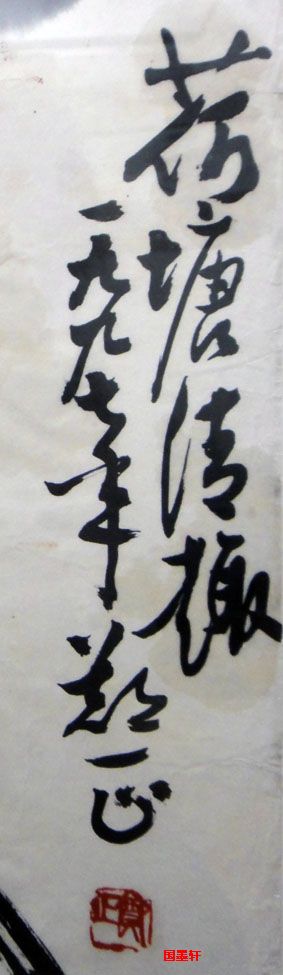 荷塘清趣
一九九七年郑一正
国墨轩